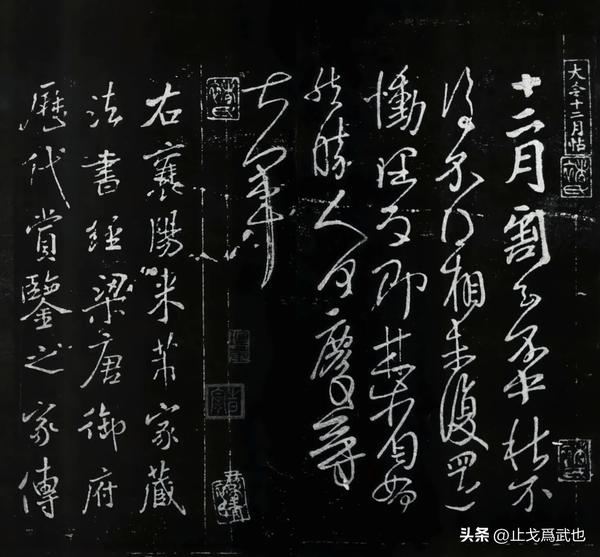 大令十二月帖
十二月割至不中秋不
復不得相未復還
慟理為即甚省如何
然勝人何慶等
大軍
右襄陽米芾家藏
法書經梁唐御府
歷代賞鑒之家傳
头条 @止戈爲武也